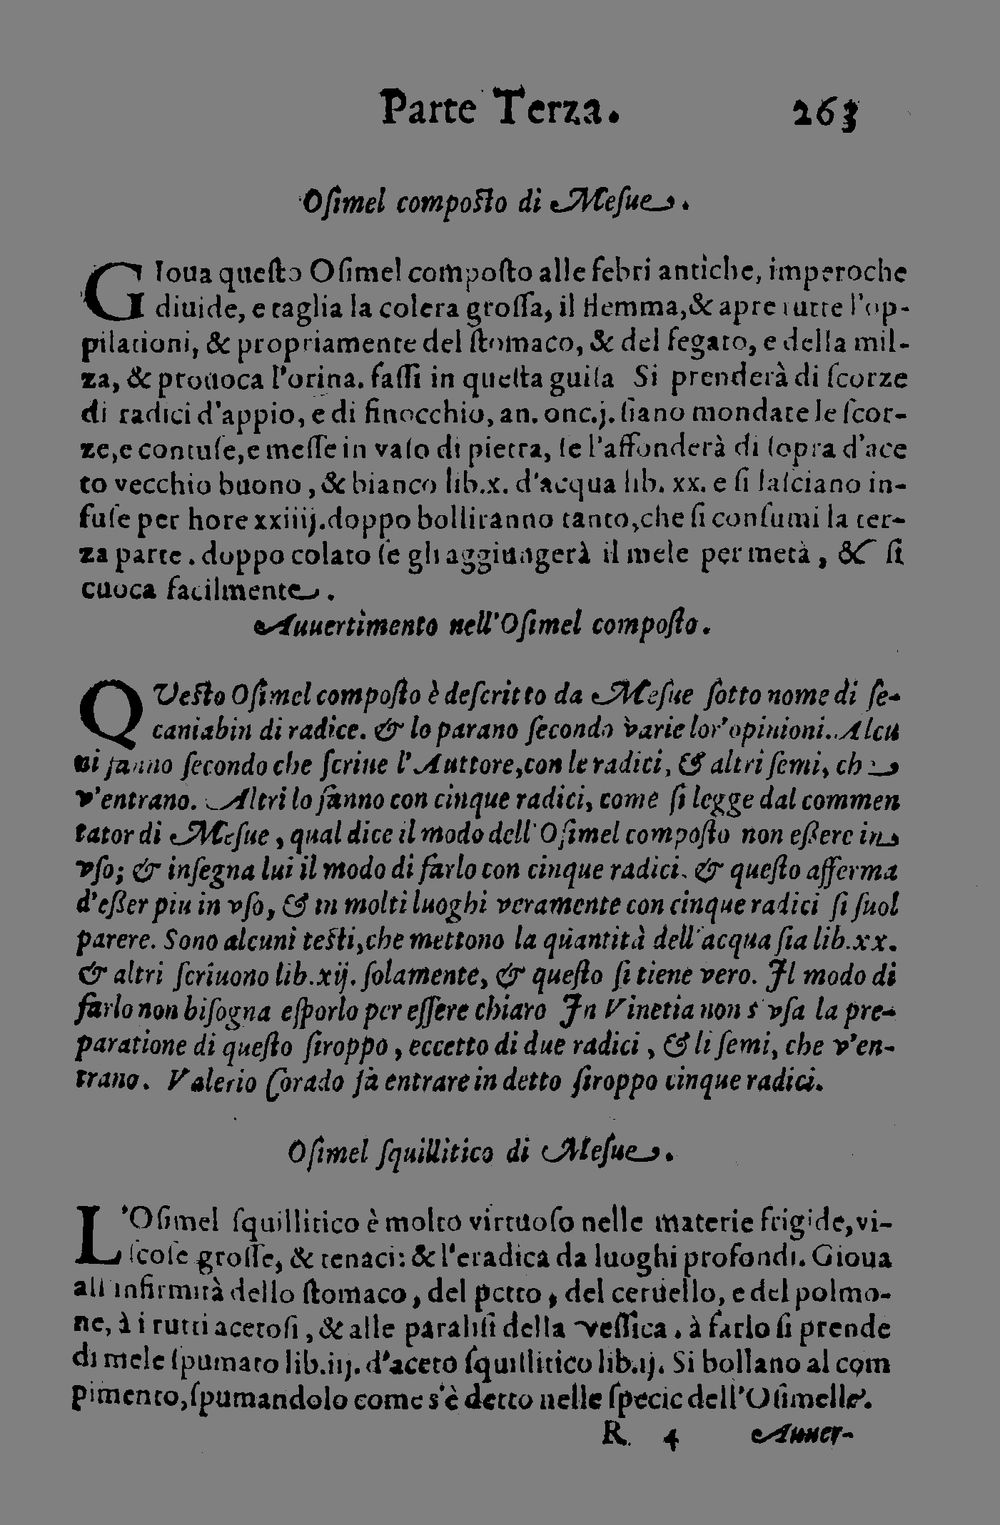 Parte Terza. 263
Oſimel compoſto di Meſue.
GIoua queſto Oſimel compoſto alle febri antiche, imperoche
diuide, e taglia la colera groſſa, il flemma,& apre tutte l'op-
pilationi, & propriamente del ſtomaco, & del fegato, e della mil-
za, & prouoca l'orina. faſſi in queſta guiſa Si prenderà di ſcorze
di radici d'appio, e di finocchio, an. onc.j. ſiano mondate le ſcor-
ze,e contuſe,e meſſe in vaſo di pietra, ſe l'affonderà di ſopra d'ace
to vecchio buono, & bianco lib.x. d'acqua lib. xx. e ſi laſciano in-
fuſe per hore xxiiij.doppo bolliranno tanto,che ſi conſumi la ter-
za parte. doppo colato ſe gli aggiungerà il mele per metà, & ſi
cuoca facilmente.
Auuertimento nell'Oſimel compoſto.
QVeſto Oſimel compoſto è deſcritto da Meſue ſotto nome di ſe-
caniabin di radice. & lo parano ſecondo varie lor'opinioni. Alcu
ni fanno ſecondo che ſcriue l'Auttore,con le radici, & altri ſemi, che
v'entrano. Altri lo fanno con cinque radici, come ſi legge dal commen
tator di Meſue, qual dice il modo dell'Oſimel compoſto non eßere in
vſo; & inſegna lui il modo di farlo con cinque radici. & queſto afferma
d'eßer piu in vſo, & in molti luoghi veramente con cinque radici ſi ſuol
parere. Sono alcuni teſti,che mettono la quantità dell'acqua ſia lib.xx.
& altri ſcriuono lib.xij. ſolamente, & queſto ſi tiene vero. Il modo di
farlo non biſogna eſporlo per eſſere chiaro In Vinetia non s'vſa la pre-
paratione di queſto ſiroppo, eccetto di due radici, & li ſemi, che v'en-
trano. Valerio Corado fà entrare in detto ſiroppo cinque radici.
Oſimel ſquillitico di Meſue.
L'Oſimel ſquillitico è molto virtuoſo nelle materie frigide,vi-
ſcoſe groſſe, & tenaci: & l'eradica da luoghi profondi. Gioua
all'infirmità dello ſtomaco, del petto, del ceruello, e del polmo-
ne, à i rutti acetoſi, & alle paraliſi della veſſica. à farlo ſi prende
di mele ſpumato lib.iij. d'aceto ſquillitico lib.ij. Si bollano al com
pimento,ſpumandolo come s'è detto nelle ſpecie dell'Oſimelle.
R 4 Auuer-